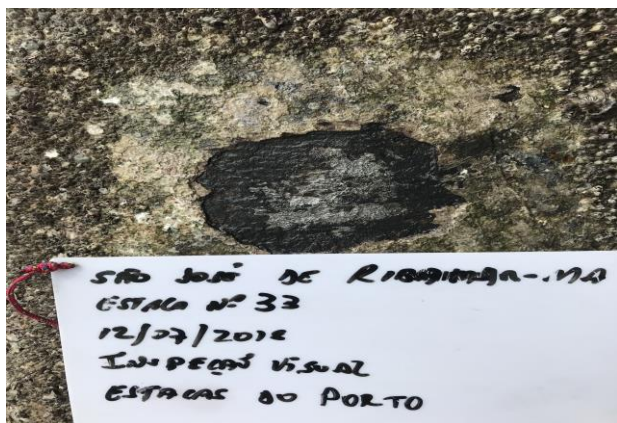 SÃO JOSÉ DE RIBAMAR-MA
ESTACA Nº 33
12/07/2018
INSPEÇÃO VISUAL
ESTACAS DO PORTO